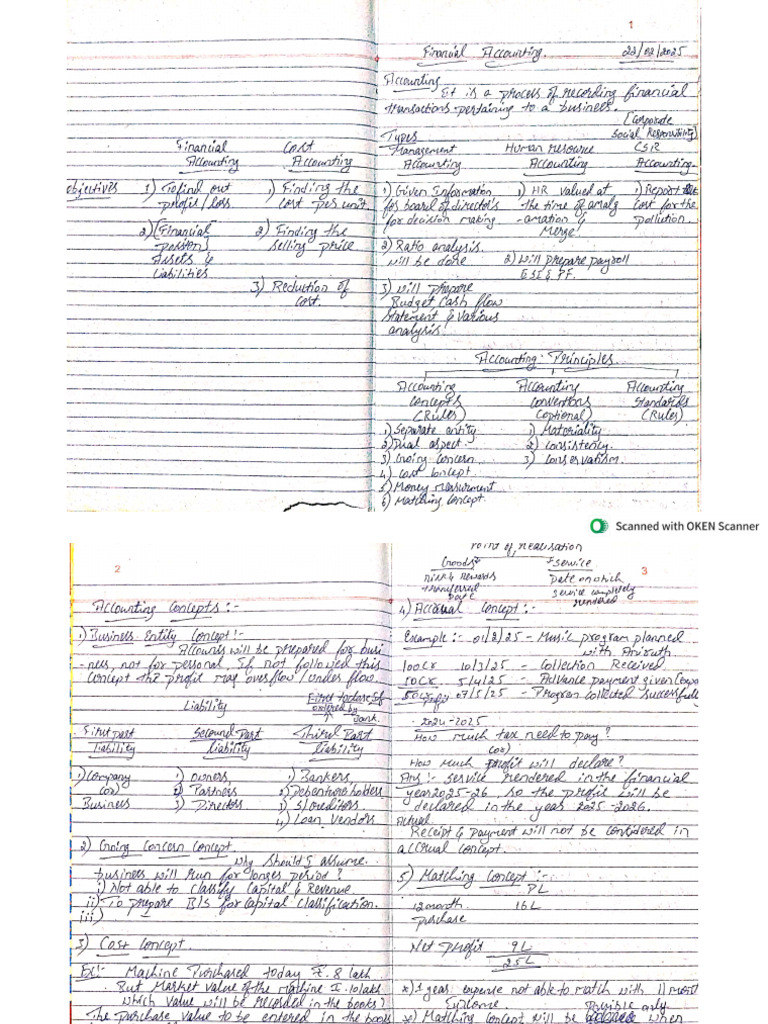 1
Financial Accounting. 22/02/2025
Accounting
It is a process of recording financial
transactions pertaining to a business.
[Corporate
Social Responsibility]
Types
Management Human resource CSR
Accounting Accounting Accounting
1) Given Information 1) HR valued at 1) Report
for board of director's the time of amalg cost for the
for decision making -amation & pollution.
Merge
2) Ratio analysis
will be done 2) will prepare payroll
ESI & PF.
3) will prepare
Budget cash flow
statement & various
analysis.
Financial Cost
Accounting Accounting
objectives 1) To find out 1) Finding the
profit/loss cost per unit.
2) [Financial 2) Finding the
position] selling price
Assets &
Liabilities
3) Reduction of
cost.
Accounting Principles
Accounting Accounting Accounting
concepts conventions Standards
(Rules) (optional) (Rules)
1) Separate entity 1) Materiality
2) Dual aspect. 2) Consistency.
3) Going Concern 3) Conservatism.
4) Cost Concept
5) Money measurment
6) Matching Concept.
Scanned with OKEN Scanner
2
Accounting Concepts :-
1) Business Entity Concept :-
Accounts will be prepared for busi
-ness, not for personal. If not followed this
concept the profit may overflow/under flow.
Liability
First part Second Part Third Part
liability liability liability
1) Company 1) owners, 1) Bankers,
(or) 2) Partners 2) Debentureholders
Business 3) Directors 3) S/creditors.
4) Loan vendors
2) Going Concern Concept.
Why should I assume.
business will run for longer period?
i) Not able to classify Capital & Revenue.
ii) To prepare B/S for Capital classification.
iii)
3) Cost Concept
Ex:- Machine Purchased today ₹. 8 lakh
But Market value of the machine ₹. 10 lakh
which value will be recorded in the books?
The purchase value to be entered in the books
3
Point of realisation
Goods service
Risk & rewards Date on which
transferred service completely
rendered
4) Accrual Concept :-
Example :- 01/2/25 - Music program planned
with Anirudh
100cr 10/3/25 - Collection Received
50cr 5/4/25 - Advance payment given
50cr profit 07/5/25 - Program collected successfully
2024-2025
How much tax need to pay?
(or)
How much profit will declare?
Ans :- service rendered in the financial
year 2025-26, so the profit will be
declared in the year 2025-2026.
Actual
Receipt & payment will not be considered in
accrual concept.
5) Matching Concept :-
12 month 16L
purchase
Net profit 9L
25L
*) 1 year expense not able to match with 11 month
*) Matching Concept will be when